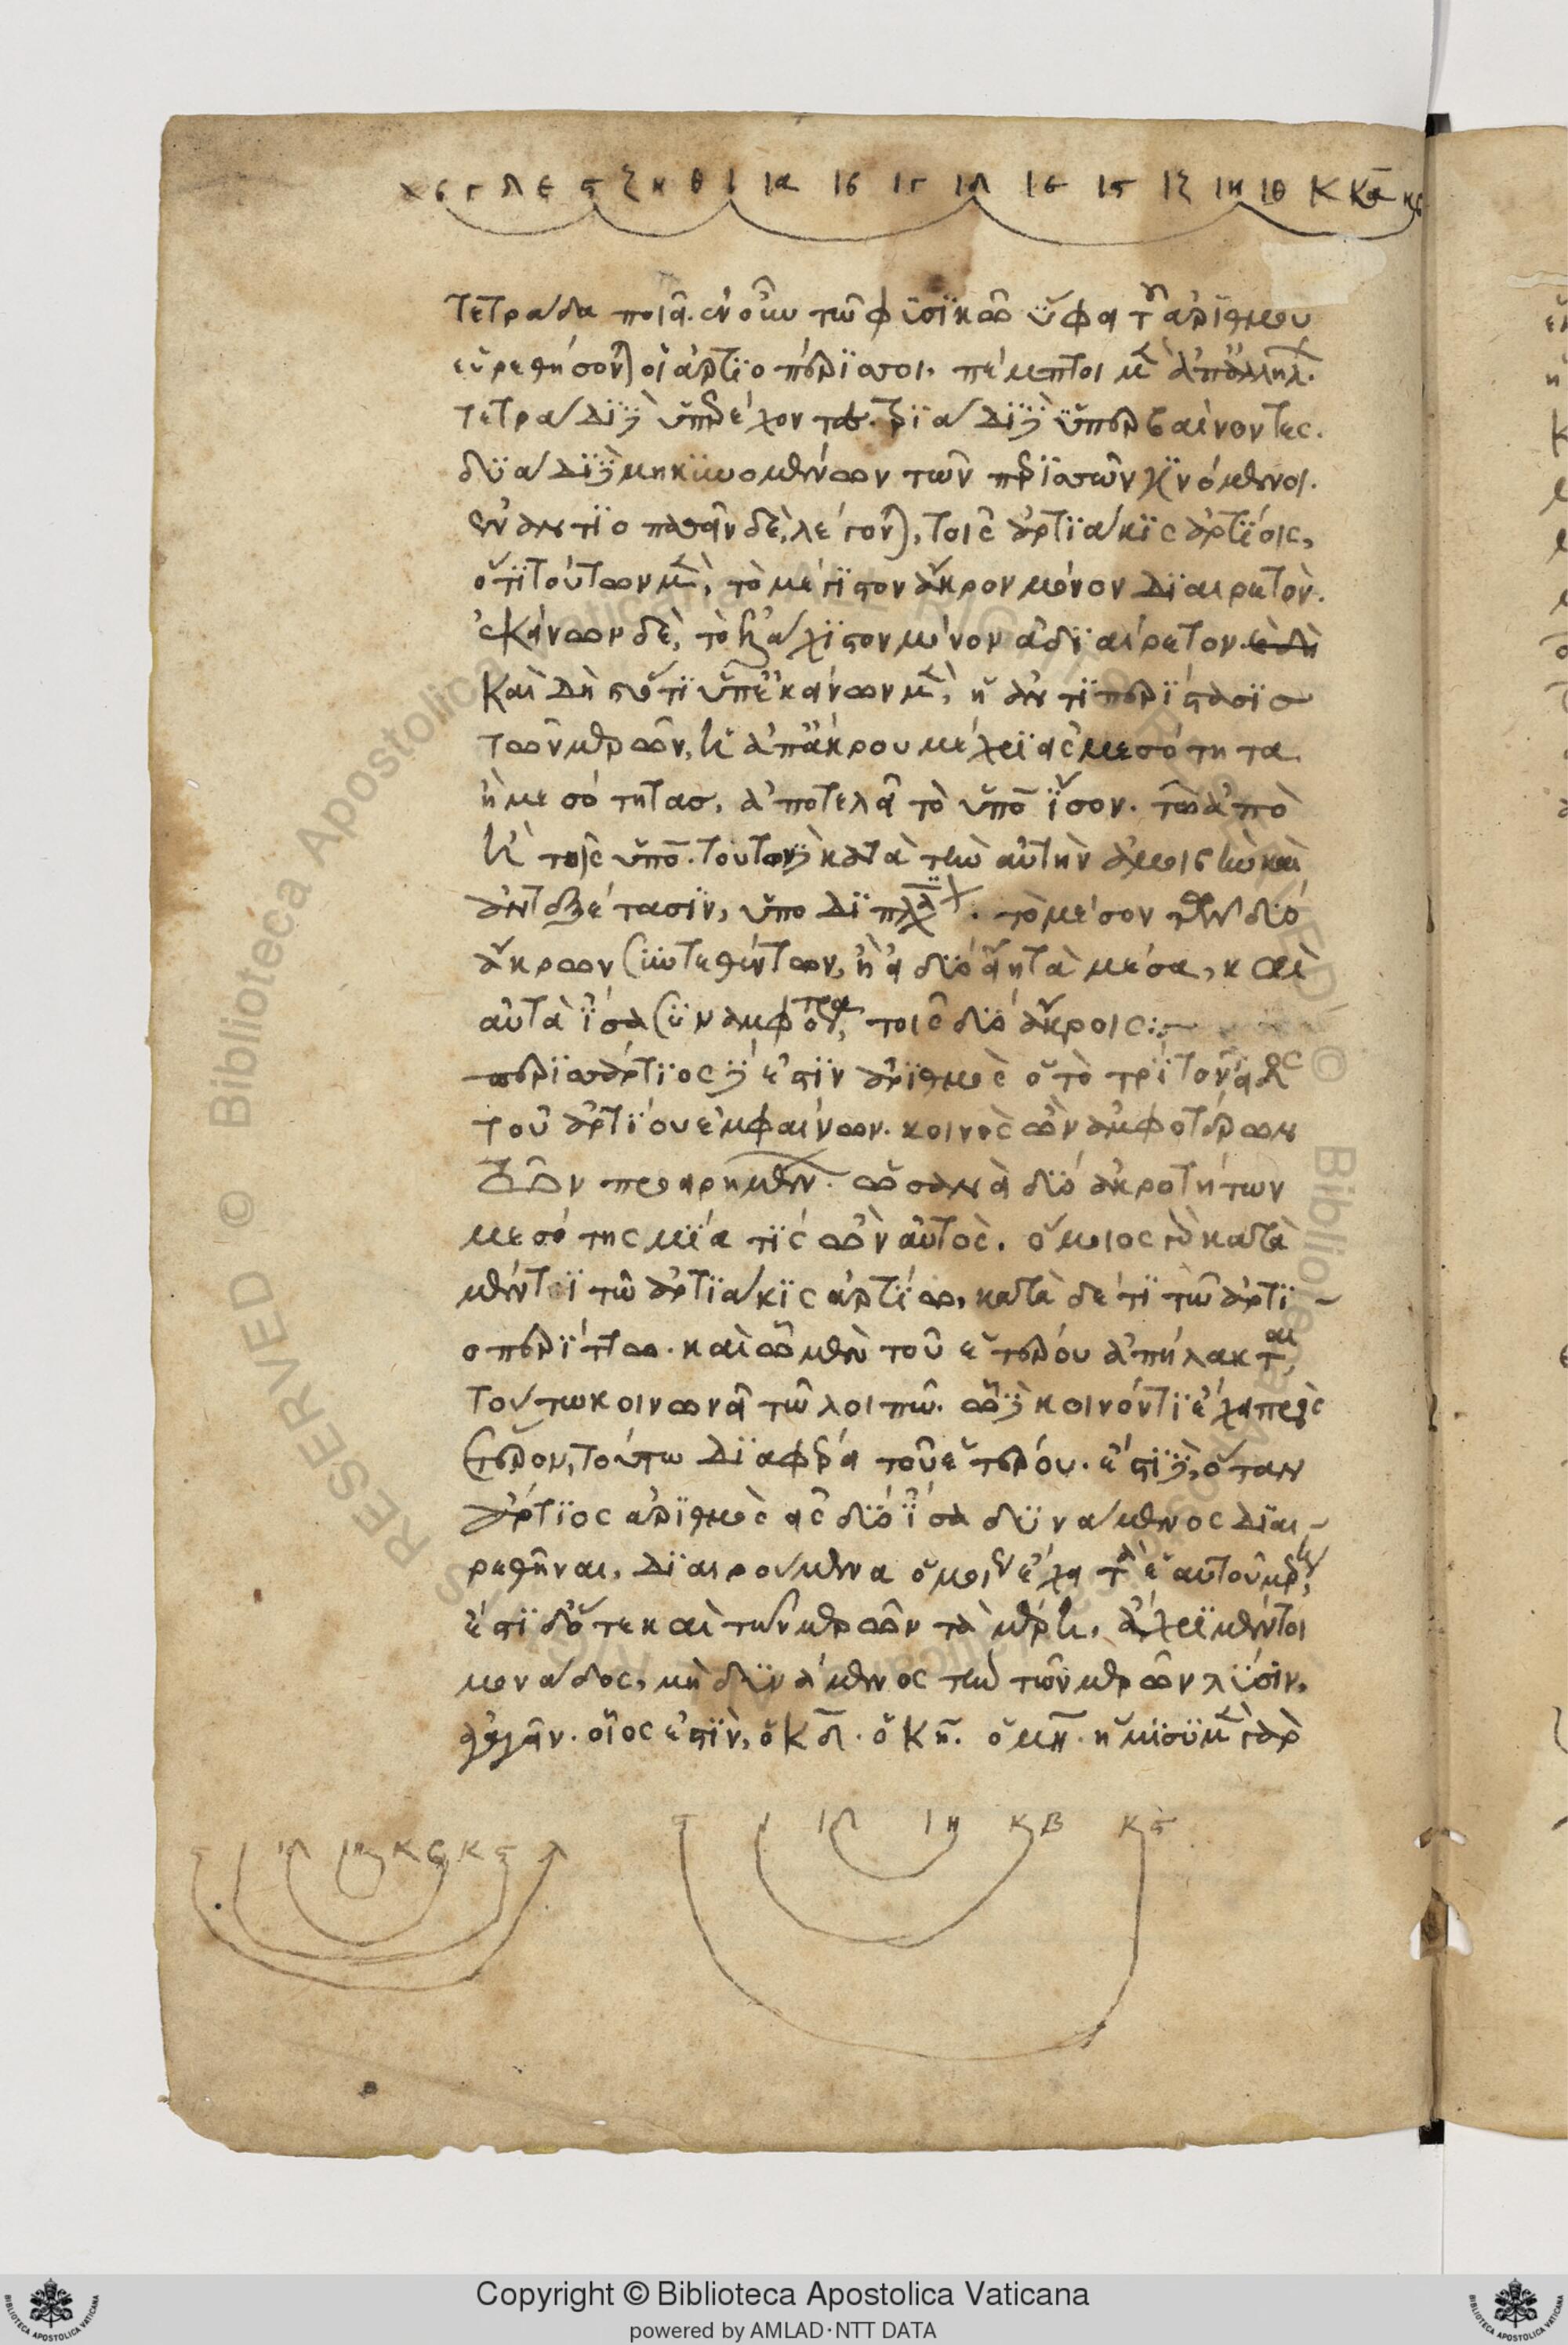 α β γ δ ε ϛ ζ η θ ι ια ιβ ιγ ιδ ιε ιϛ ιζ ιη ιθ κ κα κβ
τετράδα ποιεῖ. ἐν οὖν τῶ φϋσϊκῶ ὕφει τοῦ ἀρϊθμοῦ
εὑρεθήσονται οἱ ἀρτϊοπέρϊσσοι. πέμπτοι μὲν ἀπ' ἀλλήλων.
τετράδϊ δὲ ὑπερέχοντες. τρϊάδϊ δὲ ὑπερβαίνοντες.
δϋάδϊ δὲ μηκϋνομένων τῶν περϊσσῶν γϊνόμενοι.
ἐναντϊοπαθεῖν δὲ, λέγονται, τοῖς ἀρτϊάκϊς ἀρτϊοις,
ὅτϊ τούτων μὲν, τὸ μέγϊστον ἄκρον μόνον δϊαιρετόν.
ἐκείνων δὲ, τὸ ἐλάχϊστον μόνον ἀδϊαίρετον.
καὶ δὴ καὶ ὅτϊ ὑπ' ἐκείνων μὲν, ἡ ἀντϊπερϊστασϊσ
τῶν μερῶν, ἡ ἀπ' ἄκρου μέχρϊ εἰς μεσότητα
ἢ μεσότητασ, ἀποτελεῖ τὸ ὑπὸ ἴσον. τῶ ἀπὸ
ἢ τοῖς ὑπό. τούτων δὲ κατὰ τὴν αὐτὴν ἀμοιβὴν καὶ
ἀντεξέτασϊν, ὑπο δϊπλάσιον. τὸ μέσον τῶν δύο
ἄκρων συντεθέντων, ἢ εἰ δύο εἴη τὰ μέσα, καὶ
αὐτὰ ἴσα συναμφότερα, τοῖς δυο ἄκροις:
περϊσσάρτϊος δέ ἐστϊν ἀρϊθμὸς ὁ τὸ τρίτον εἶδος
τοῦ ἀρτϊου ἐμφαίνων. κοινὸς ὢν ἀμφοτέρων
τῶν προειρημένων. ὡσανεὶ δύο ἀκροτήτων
μεσότης μϊα τϊς ὢν αὐτὸς. ὅμοιος γὰρ κατὰ
μέν τϊ τῶ ἀρτϊάκϊς ἀρτϊω, κατὰ δέ τϊ τῶ ἀρτϊ-
οπερίττω. καὶ ὧ μὲν τοῦ ἑτέρου ἀπήλακται,
τούτω κοινωνεῖ τῶ λοιπῶ. ὧ δὲ κοινόν τϊ ἔχει πρὸς
ἕτερον, τούτω δϊαφέρει τοῦ ἑτέρου. ἔστϊ δὲ, ὅταν
ἀρτϊος ἀρϊθμὸς εἰς δύο ἴσα δϋνάμενος δϊαι-
ρεθῆναι, δϊαιρούμενα ὁμοίως ἔχη τὰ ἑαυτοῦ μέρη,
ἔστϊ δ' ὅτε καὶ τῶν μερῶν τὰ μέρη, ἄχρϊ μέντοι
μονάδος, μὴ δϋνάμενος τὴν τῶν μερῶν λϋσϊν,
ἀγαγεῖν. οἷός ἐστϊν, ὁ κδ. ὁ κη. ὁ μη. ἥμϊσϋ μὲν γὰρ
ϛ ι ιδ ιη κβ κϛ λ
ϛ ι ιδ ιη κβ κϛ
Copyright © Biblioteca Apostolica Vaticana
powered by AMLAD·NTT DATA